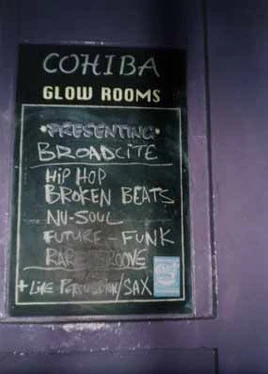 COHIBA
GLOW ROOMS
•PRESENTING•
BROADCITE
HIP HOP
BROKEN BEATS
NU-SOUL
FUTURE - FUNK
RARE GROOVE
+ LIVE PERCUSSION/SAX